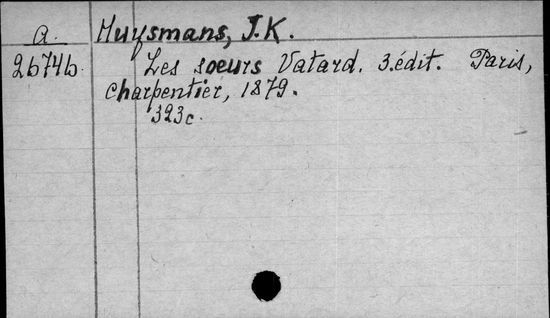 a.
Huysmans, J.K.
26746.
Les soeurs Vatard. 3.édit. Paris,
Charpentier, 1879.
323c.